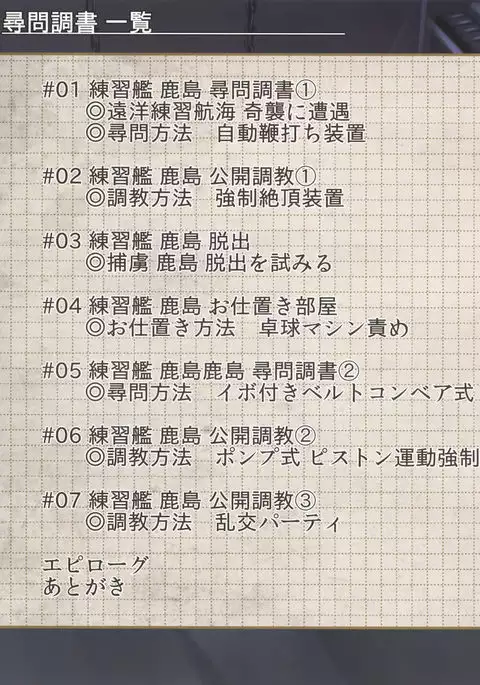 尋問調書 一覧
#01 練習艦 鹿島 尋問調書①
◎遠洋練習航海 奇襲に遭遇
◎尋問方法　自動鞭打ち装置
#02 練習艦 鹿島 公開調教①
◎調教方法　強制絶頂装置
#03 練習艦 鹿島 脱出
◎捕虜 鹿島 脱出を試みる
#04 練習艦 鹿島 お仕置き部屋
◎お仕置き方法　卓球マシン責め
#05 練習艦 鹿島鹿島 尋問調書②
◎尋問方法　イボ付きベルトコンベア式
#06 練習艦 鹿島 公開調教②
◎調教方法　ポンプ式 ピストン運動強制
#07 練習艦 鹿島 公開調教③
◎調教方法　乱交パーティ
エピローグ
あとがき